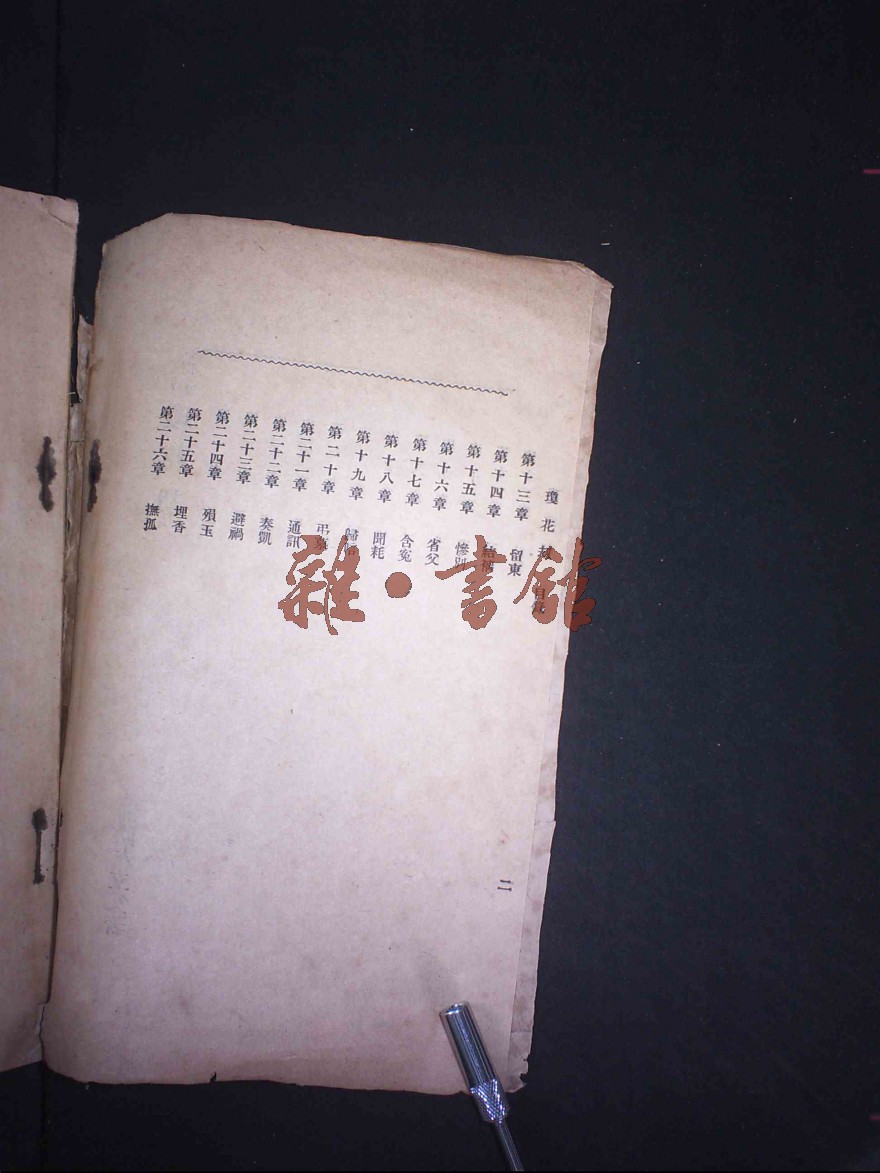 瓊花劫 目次
第十三章 留東
第十四章
第十五章 慘別
第十六章 省父
第十七章 含冤
第十八章 聞耗
第十九章 歸
第二十章 弔
第二十一章 通訊
第二十二章 奏凱
第二十三章 避禍
第二十四章 殞玉
第二十五章 埋香
第二十六章 撫孤
二
雜·書館